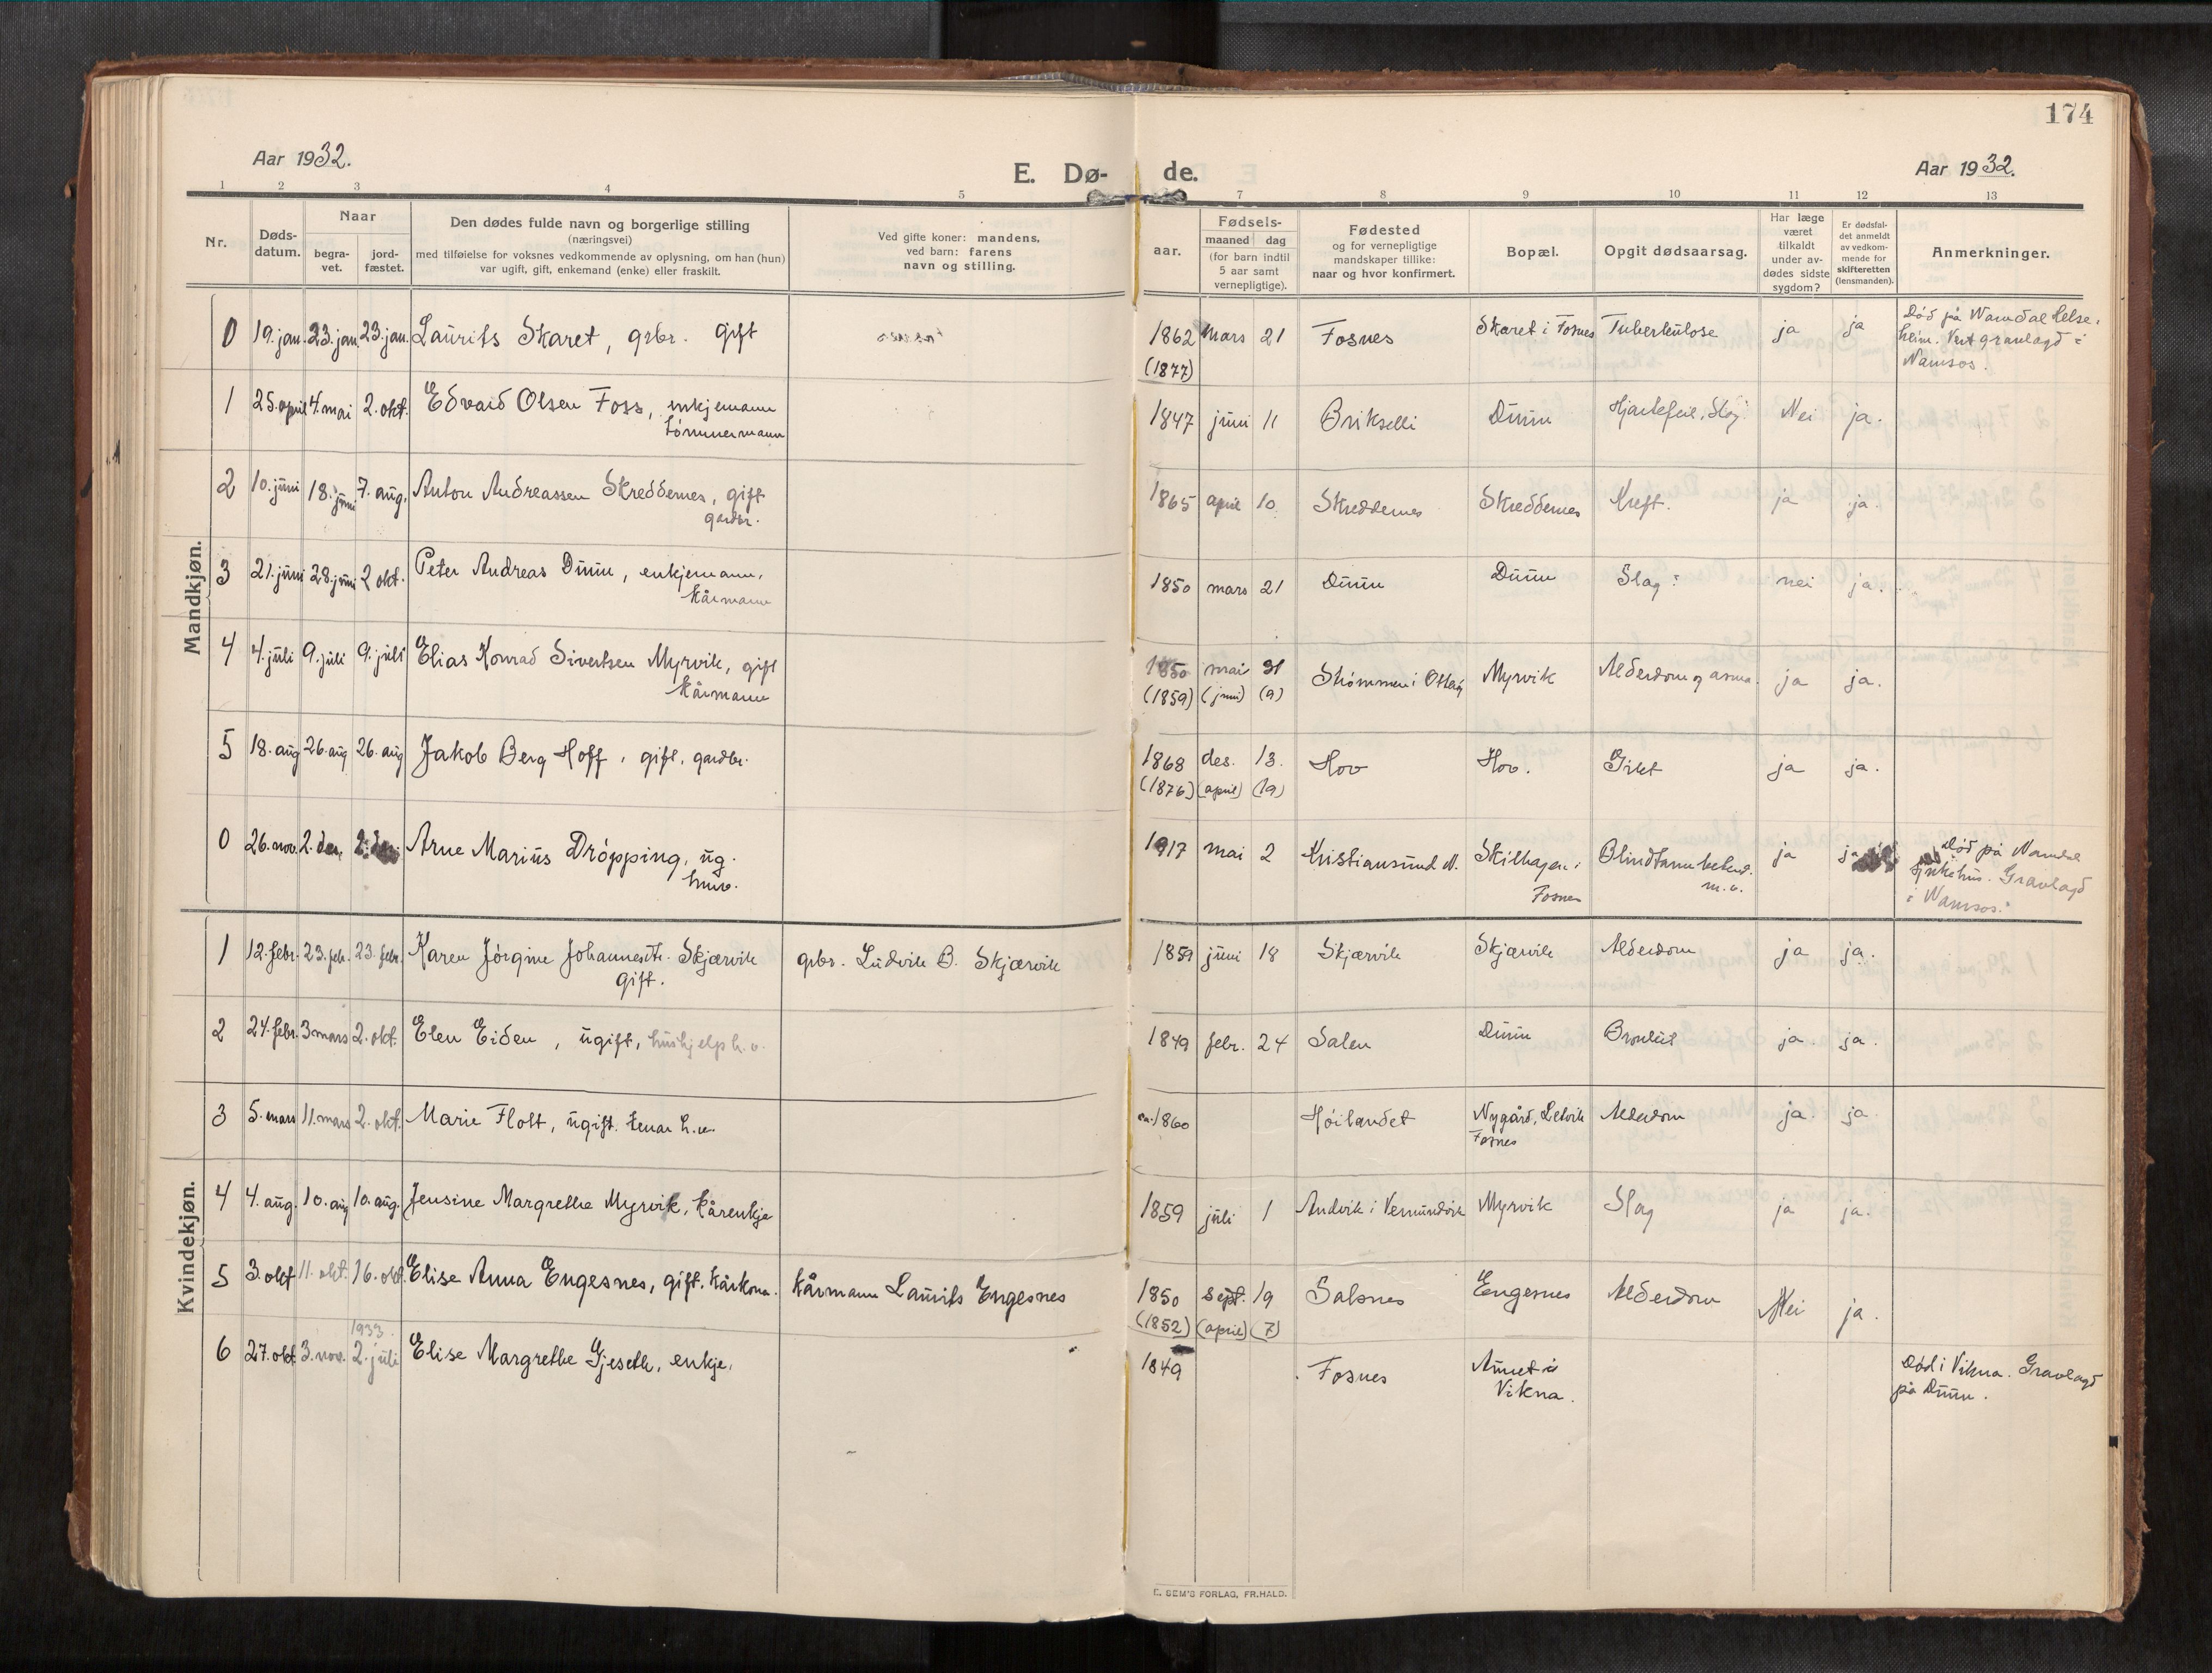 174
Aar 1932.
E. Dø-de.
Aar 1932.
1 2 3 4 5 7 8 9 10 11 12 13
Nr.
Døds-datum.
Naar
begra-vet.
jord-fæstet.
Den dødes fulde navn og borgerlige stilling
(næringsvei)
med tilføielse for voksnes vedkommende av oplysning, om han (hun)
var ugift, gift, enkemand (enke) eller fraskilt.
Ved gifte koner: mandens,
ved barn: farens
navn og stilling.
aar.
Fødsels-
maaned dag
(for barn indtil
5 aar samt
vernepligtige).
Fødested
og for vernepligtige
mandskaper tillike:
naar og hvor konfirmert.
Bopæl.
Opgit dødsaarsag.
Har læge
været
tilkaldt
under av-
dødes sidste
sygdom?
Er dødsfal-
det anmeldt
av vedkom-
mende for
skifteretten
(lensmanden).
Anmerkninger.
Mandkjøn.
0 19. jan. 23. jan. 23. jan. Laurits Skaret, grbr. gift 1862 mars 21 Fosnes Skaret i Fosnes Tuberkulose ja ja Død på Namdal helse-
(1877) heim. Vert gravlagd i
Namsos.
1 25. april 4. mai 2. okt. Edvard Olsen Foss, enkjemann 1847 juni 11 Duun Hjartefeil, Slag. Nei ja.
tømmermann
2 10. juni 18. juni 7. aug. Anton Andreassen Skreddernes, gift 1865 april 10 Skreddernes Skreddernes Kreft. ja ja.
gardbr.
3 21. juni 28. juni 2 okt. Peter Andreas Duun, enkjemann, 1850 mars 21 Duun Duun Slag nei ja.
kårmann
4 4. juli 9. juli 9. juli Elias Konrad Sivertsen Myrvik, gift 1850 mai 31 Strømmen i Otterøy Myrvik Alderdom og asma. ja ja.
kårmann (1859) (juni) (9)
5 18. aug 26. aug 26. aug Jakob Berg Hoff, gift, gardbr. 1868 des. 13. Hov Hov. Gikt ja ja.
(1876) (april) (19)
0 26. nov. 2. des. 2. des. Arne Marius Drøpping, ug. 1917 mai 2 Kristiansund N. Skilhagen i Blindtarmbetend. ja ja Død på Namdal
Fosnes m.v. sjukehus. Gravlagd
i Namsos.
Kvindekjøn.
1 12. febr. 23. feb. 23. febr. Karen Jørgine Johannesdtr. Skjærvik grbr. Ludvik B. Skjærvik 1859 juni 18 Skjærvik Skjærvik Alderdom ja ja.
gift.
2 24. febr. 3 mars 2. okt. Elen Eiden, ugift, hushjelp h.v. 1849 febr. 24 Salen Duun Bronkit ja ja.
3 5. mars 11. mars 2. okt. Marie Flott, ugift. tenar h.v. 1860 Høilandet Nygård, Letvik Alderdom ja. ja
Fosnes
4 4. aug. 10. aug 10. aug. Jensine Margrethe Myrvik, kårenkje 1859 juli 1 Andvik i Vemundvik Myrvik Slag ja ja.
5 3. okt 11. okt. 16. okt. Elise Anna Engesnes, gift. kårkona. kårmann Laurits Engesnes 1850 sept. 19 Salsnes Engesnes Alderdom Nei ja.
(1852) (april) (7)
1933.
6 27. okt 3. nov. 2. juli Elise Margrethe Gjeseth, enkje, 1849 Fosnes Aunet i Død i Vikna. Gravlagd
Vikna. på Duun.
E. SEM'S FORLAG, FR.HALD.